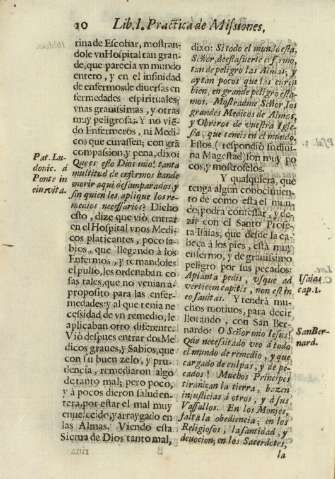 20 Lib. I. Practica de Missiones,
rina de Escobar, mostran-
dole vn Hospital tan gran-
de, que parecia vn mundo
entero, y en el infinidad
de enfermos de diuersas en
fermedades espirituales
vnas grauissimas, y otras
muy peligrosas. Y no vió
do Enfermeros, ni Medi-
cos que curassen; con grã
compassion, y pena, dixo:
Que es esto Dios mio! tanta
multitud de enfermos han de
morir aqui desamparados, y
sin quien les aplique los re-
medios necessarios? Dicho
esto, dize que vió, entrar
en el Hospital vnos Medi-
cos platicantes, poco sa-
bios, que llegando à los
Enfermos, y tomandoles
el pulso, les ordenaban co
sas tales, que no venian à
proposito para las enfer-
medades: y al que tenia ne
cessidad de vn remedio, le
aplicaban otro diferente.
Viò despues entrar dos Me
dicos graues, y Sabios, que
con su buen zelo, y pru-
dencia, remediaron algo
de tanto mal; pero poco,
y à pocos dieron salud en-
tera, por estar el mal muy
enuejecido, y arraygado en
las Almas. Viendo esta
Sierua de Dios tanto mal,
Pat. Lu-
douic. à
Ponte in
eius vita.
dixo: Si todo el mundo està,
Señor, de esta suerte enfermo,
tan de peligro las Almas, y
ay tan pocos que los curen
bien, en grande peligro esta-
mos. Mostradme Señor, los
grandes Medicos de Almas,
y Obreros de vuestra Igle-
sia, que teneis en el mundo.
Estos (respondiò su diuina
Magestad) son muy po-
cos, y mostròselos.
Y qualquiera, que
tenga algun conocimien-
to de como està el mun-
do, podrà contestar, y de-
zir con el Santo Profe-
ta Isaias, que desde la ca-
beça à los pies, està muy
enfermo, y de grauissimo
peligro por sus pecados:
A planta pedis, vsque ad
verticem capitis, non est in
eo sanitas. Y tendrà mu-
chos motiuos, para dezir
llorando, con San Ber-
nardo: O Señor mio Iesus!
Que necessitado veo à todo
el mundo de remedio, y que
cargado de culpas, y de pe-
cados! Muchos Principes
tiranizan la tierra, hazen
injusticias à otros, y à sus
Vassallos. En los Monjes,
falta la obediencia; en los
Religiosos, la santidad, y
deuocion, en los Sacerdotes,
la
Isaias
cap. 1.
San Ber-
nard.